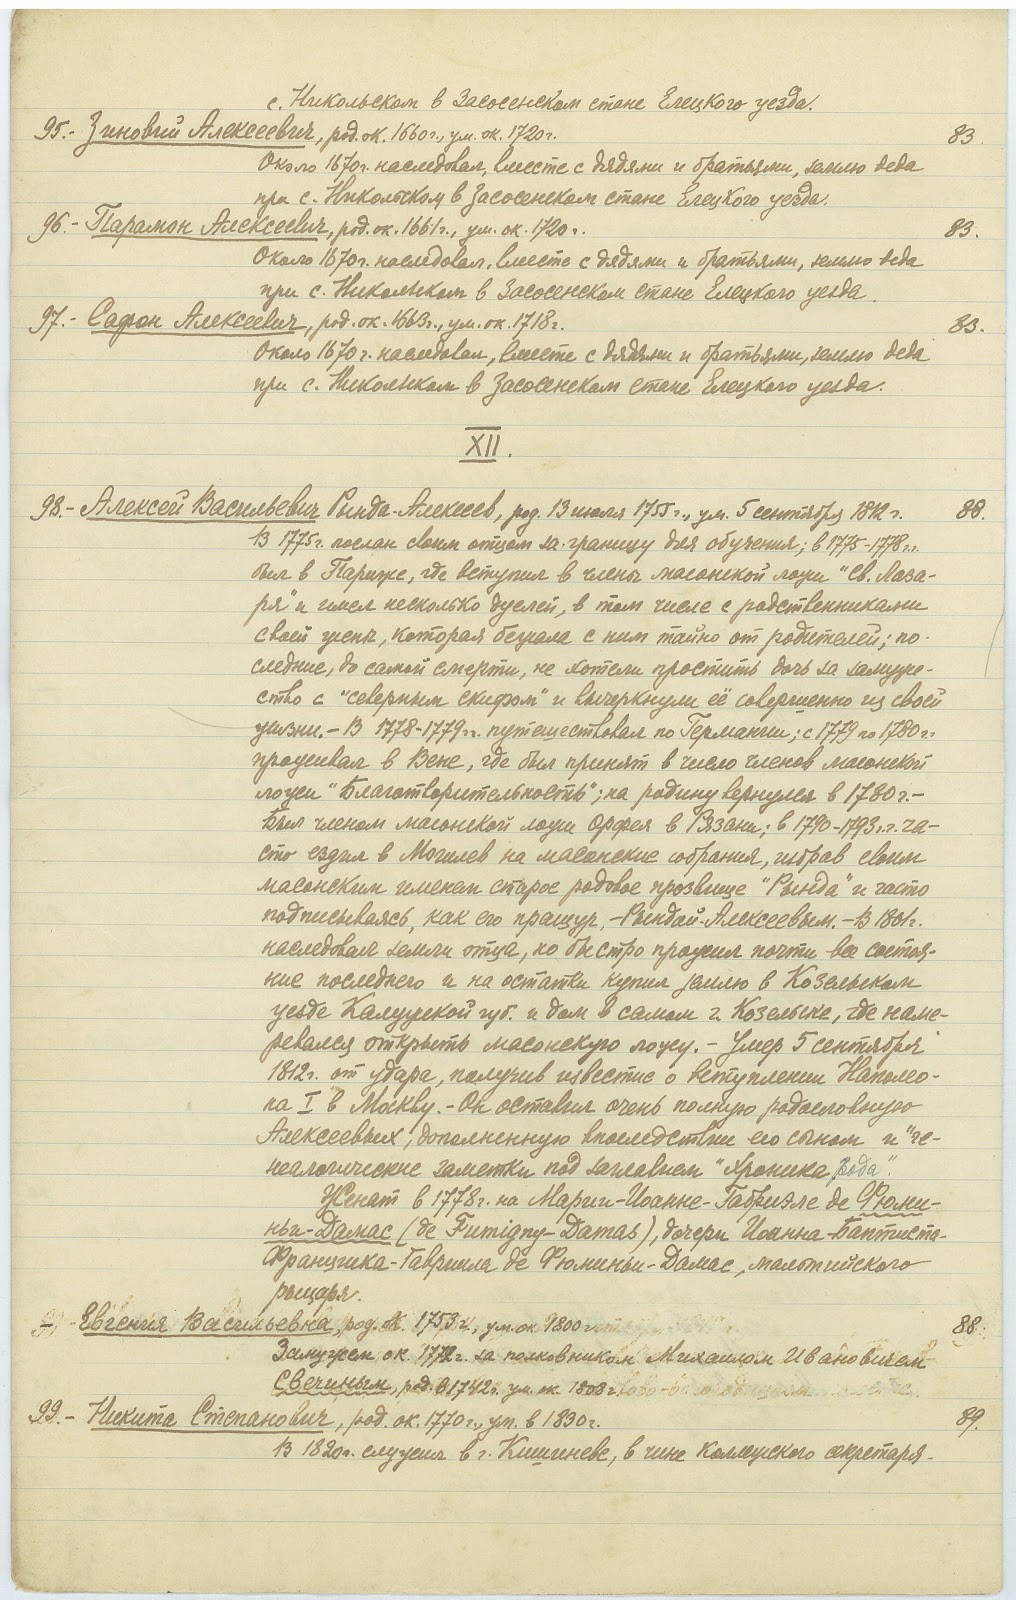 с. Никольском в Засосенском стане Елецкого уезда.
95.- Зиновий Алексеевич, род. ок. 1660 г., ум. ок. 1720 г. 83.
Около 1670 г. наследовал, вместе с дядями и братьями, землю деда
при с. Никольском в Засосенском стане Елецкого уезда.
96.- Парамон Алексеевич, род. ок. 1661 г., ум. ок. 1720 г. 83.
Около 1670 г. наследовал, вместе с дядями и братьями, землю деда
при с. Никольском в Засосенском стане Елецкого уезда.
97.- Сафон Алексеевич, род. ок. 1663 г., ум. ок. 1718 г. 83.
Около 1670 г. наследовал, вместе с дядями и братьями, землю деда
при с. Никольском в Засосенском стане Елецкого уезда.
XII.
98.- Алексей Васильевич Рында-Алексеев, род. 13 июля 1755 г., ум. 5 сентября 1812 г. 88.
В 1775 г. послан своим отцом за границу для обучения; в 1775-1778 г.г.
был в Париже, где вступил в члены масонской ложи "Св. Лаза-
ря" и имел несколько дуелей, в том числе с родственниками
своей жены, которая бежала с ним тайно от родителей; по-
следние, до самой смерти, не хотели простить дочь за замуже-
ство с "северным скифом" и вычеркнули её совершенно из своей
жизни.- В 1778-1779 г.г. путешествовал по Германии; с 1779 по 1780 г.г.
проживал в Вене, где был принят в число членов масонской
ложи "Благотворительность"; на родину вернулся в 1780 г.-
Был членом масонской ложи Орфея в Рязани; в 1790-1793 г.г. ча-
сто ездил в Могилев на масонские собрания, избрав своим
масонским именем старое родовое прозвище "Рында" и часто
подписываясь, как его пращур, -Рындой-Алексеевым.- В 1801 г.
наследовал земли отца, но быстро прожил почти все состоя-
ние последнего и на остатки купил землю в Козельском
уезде Калужской губ. и дом в самом г. Козельске, где наме-
ревался открыть масонскую ложу.- Умер 5 сентября
1812 г. от удара, получив известие о вступлении Наполео-
на I в Москву.- Он оставил очень полную родословную
Алексеевых, дополненную впоследствии его сыном и "ге-
неалогические заметки под заглавием "Хроника рода".
Женат в 1778 г. на Марии-Иоанне-Габриэле де Фюми-
ньи-Дамас (de Fumigny-Damas), дочери Иоанна-Баптиста-
Франциска-Гавриила де Фюминьи-Дамас, мальтийского
рыцаря.
- Евгения Васильевна, род. ок. 1753 г., ум. ок. 1800 г. 88.
Замужем ок. 1772 г. за полковником Михаилом Ивановичем
Свечиным, род. в 1742 г. ум. ок. 1808 г.
99.- Никита Степанович, род. ок. 1770 г., ум. в 1830 г. 89.
В 1820 г. служил в г. Кишиневе, в чине коллежского секретаря.